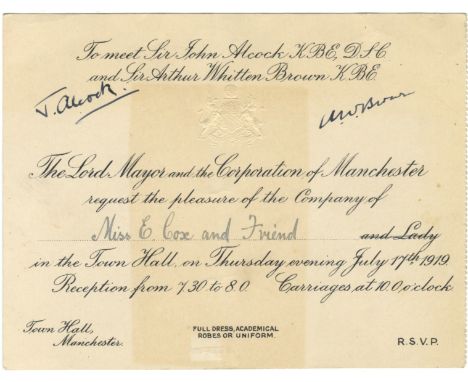 To meet Sir John Alcock K.B.E, D.S.C
and Sir Arthur Whitten Brown K.B.E.
J. Alcock.
AWBrown
The Lord Mayor and the Corporation of Manchester
request the pleasure of the Company of
Miss E Cox and Friend and Lady
in the Town Hall, on Thursday evening July 17th 1919
Reception from 7.30 to 8.0. Carriages at 10.0,o'clock
Town Hall,
Manchester.
FULL DRESS, ACADEMICAL
ROBES OR UNIFORM.
R.S.V.P.